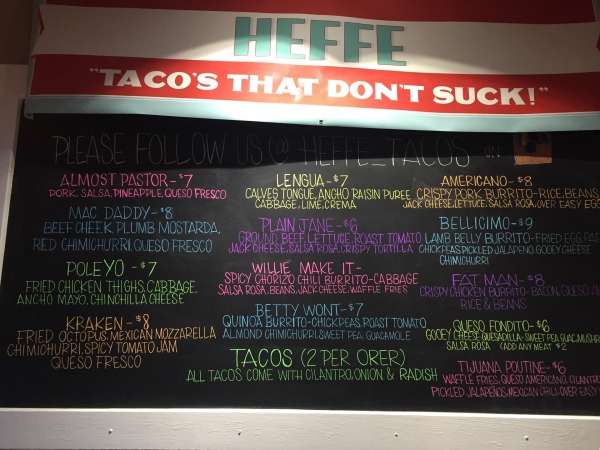 HEFFE
"TACO'S THAT DON'T SUCK!"
PLEASE FOLLOW US @ HEFFE_TACOS ON
ALMOST PASTOR - $7
PORK, SALSA, PINEAPPLE, QUESO FRESCO
MAC DADDY - $8
BEEF CHEEK, PLUMB MOSTARDA,
RED CHIMICHURRI, QUESO FRESCO
POLEYO - $7
FRIED CHICKEN THIGHS, CABBAGE,
ANCHO MAYO, CHINCHILLA CHEESE
KRAKEN - $8
FRIED OCTOPUS, MEXICAN MOZZARELLA
CHIMICHURRI, SPICY TOMATO JAM
QUESO FRESCO
LENGUA - $7
CALVES TONGUE, ANCHO RAISIN PUREE
CABBAGE, LIME CREMA
PLAIN JANE - $6
GROUND BEEF, LETTUCE, ROAST TOMATO
JACK CHEESE, SALSA ROSA, CRISPY TORTILLA
WILLIE MAKE IT -
SPICY CHORIZO CHILI BURRITO - CABBAGE
SALSA ROSA, BEANS, JACK CHEESE, WAFFLE FRIES
BETTY WONT - $7
QUINOA BURRITO - CHICKPEAS, ROAST TOMATO
ALMOND CHIMICHURRI, SWEET PEA GUACMOLE
TACOS (2 PER ORER)
ALL TACOS COME WITH CILANTRO, ONION & RADISH
AMERICANO - $8
CRISPY PORK BURRITO - RICE, BEANS,
JACK CHEESE, LETTUCE, SALSA ROSA, OVER EASY EGG
BELLICIMO - $9
LAMB BELLY BURRITO - FRIED EGG,
CHICKPEAS, PICKLED JALAPENO, GOOEY CHEESE
CHIMICHURRI
FAT MAN - $8
CRISPY CHICKEN BURRITO - BACON, QUESO
RICE & BEANS
QUESO FONDITO - $6
GOOEY CHEESE QUESADILLA - SWEET PEA GUAC,
SALSA ROSA (ADD ANY MEAT $2
TIJUANA POUTINE - $6
WAFFLE FRIES, QUESO AMERICANO,
PICKLED JALAPENOS, MEXICAN CHILI - OVER EASY